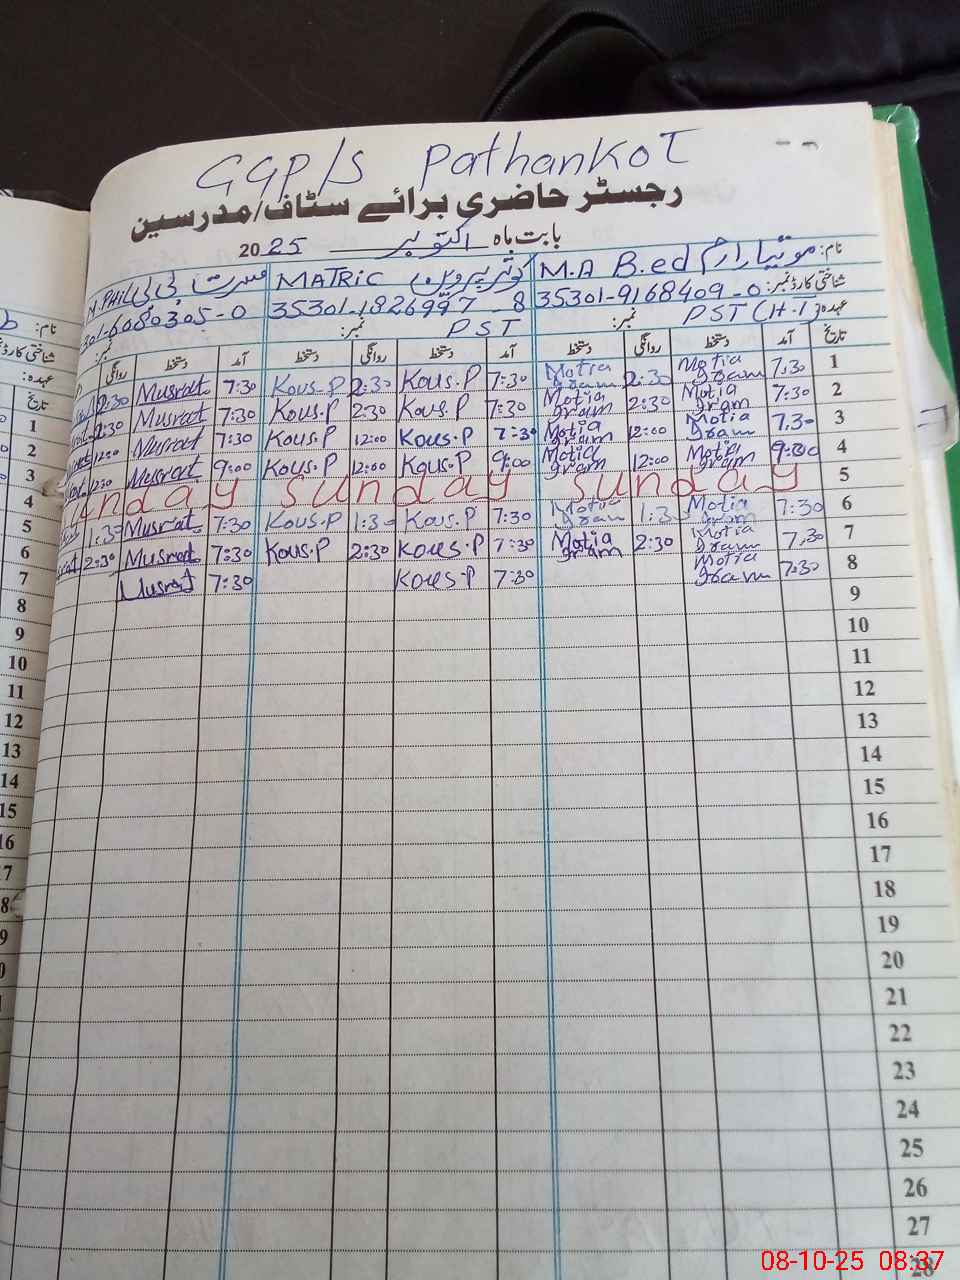 GGP/S Pathankot
رجسٹر حاضری برائے سٹاف/مدرسین
بابت ماہ اکتوبر 2025
نام: موتیا ارم M.A B.ed کوثر پروین MATRIC مسرت بی بی M.PHIL
شناختی کارڈ نمبر: 35301-9168409-0 35301-1826997-8 301-6080305-0
عہدہ: PST (H.T) نمبر: PST نمبر:
تاریخ آمد دستخط روانگی دستخط آمد دستخط روانگی دستخط آمد دستخط روانگی
1 7.30 Motia Iram 2:30 Motia Iram 7:30 Kous.P 2:30 Kous.P 7:30 Musrat 2:30
2 7:30 Motia Iram 2:30 Motia Iram 7:30 Kous.P 2:30 Kous.P 7:30 Musrat 2:30
3 7.30 Motia Iram 12:00 Motia Iram 7:30 Kous.P 12:00 Kous.P 7:30 Musrat 12:00
4 9:00 Motia Iram 12:00 Motia Iram 9:00 Kous.P 12:00 Kous.P 9:00 Musrat 12:00
5 Sunday Sunday Sunday
6 7:30 Motia Iram 1:30 Motia Iram 7:30 Kous.P 1:30 Kous.P 7:30 Musrat 1:30
7 7.30 Motia Iram 2:30 Motia Iram 7:30 Kous.P 2:30 Kous.P 7:30 Musrat 2:30
8 7:30 Motia Iram 7:30 Kous.P 7:30 Musrat
9
10
11
12
13
14
15
16
17
18
19
20
21
22
23
24
25
26
27
28
نام:
شناختی کارڈ
عہدہ:
تاریخ
1
2
3
4
5
6
7
8
9
10
11
12
13
14
15
16
08-10-25 08:37